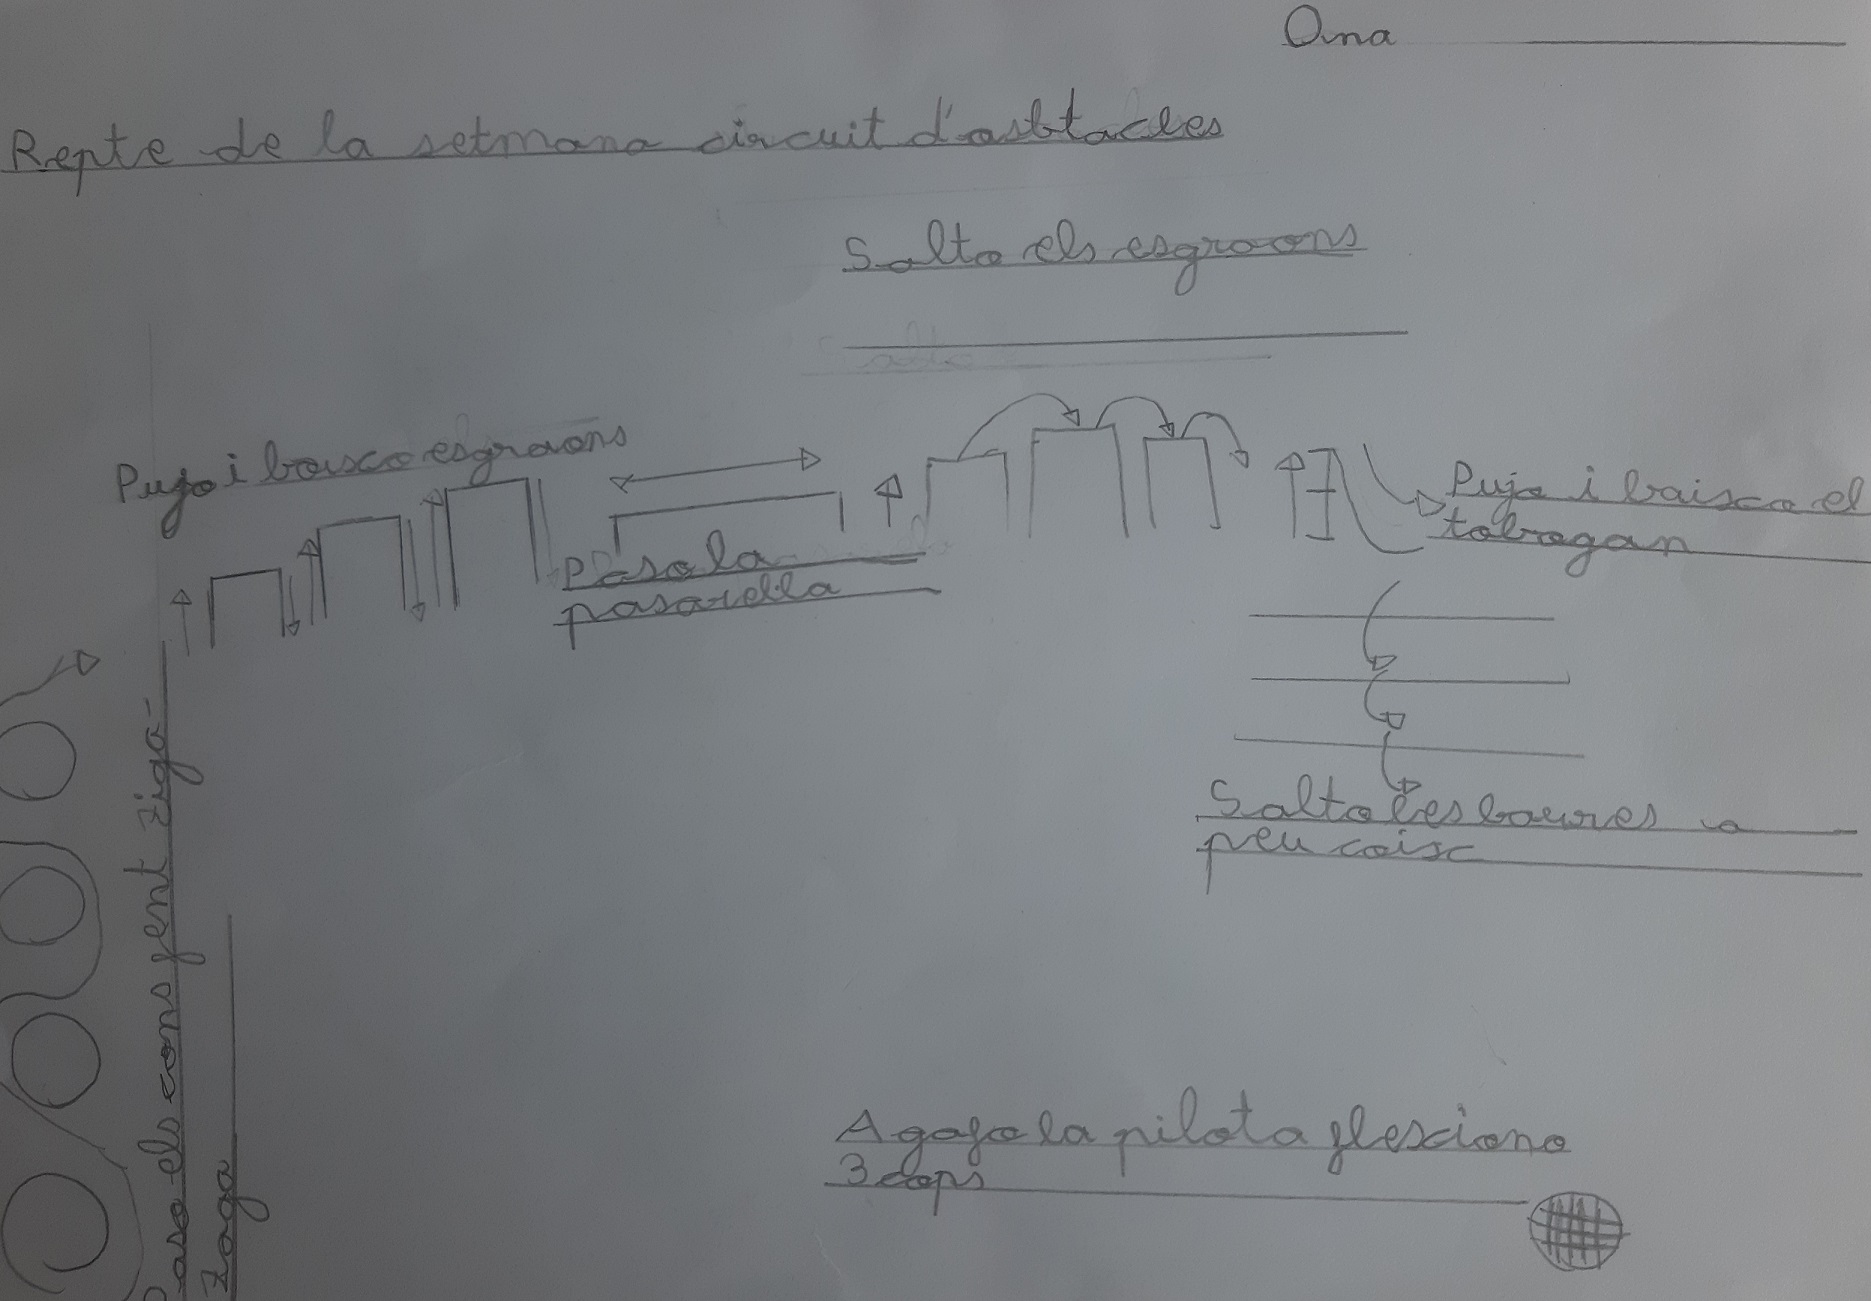 Ona
Repte de la setmana circuit d'asbtacles
Salta els esgraons
Puja i baixa esgraons
Pasa la
pasarella
Puja i baixa el
tobragan
Pasa els cons fent ziga-
zaga
Salta les barres a
peu coix
Agafa la pilota flexiona
3 cops